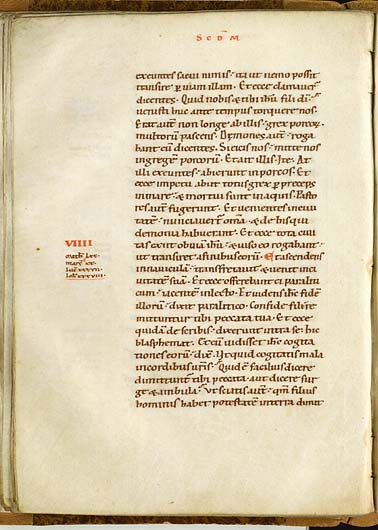 SCDM
exeuntes saevi nimis. ita ut nemo possit
transire p viam illam. Et ecce clamaver
dicentes. Quid nobis & tibi ihu fili di.
venisti huc ante tempus torquere nos.
Erat aut non longe ab illis grex porcor
multorum pascens. Demones aut roga
bant eum dicentes. Si eicis nos. mitte nos
in gregem porcorum. Et ait illis. Ite. At
illi exeuntes. abierunt in porcos. Et
ecce impetu abiit totus grex p preceps
in mare. & mortui sunt in aquis. Pasto
res aut fugerunt. Et venientes in civi
tate. nunciaver oma. & de his qui
demonia habuerant. Et ecce tota civi
tas exiit obviam ihu. & viso eo rogabant.
ut transiret a finibus eoru. Et ascendens
in navicula. transfretavit. & venit in civi
tate sua. Et ecce offerebant ei paraliti
cum. iacente in lecto. Et videns ihs fide
illorum. dixit paralitico. Confide fili re
mittuntur tibi peccata tua. Et ecce
quida de scribis. dixerunt intra se. hic
blasphemat. Et cum vidisset ihs cogita
tiones eoru. dix. Ut quid cogitatis mala
in cordibus uris. Quid e facilius dicere
dimittunt tibi peccata. aut dicere sur
ge & ambula. Ut sciatis aut. qm filius
hominis habet potestate in terra dimit
VIIII